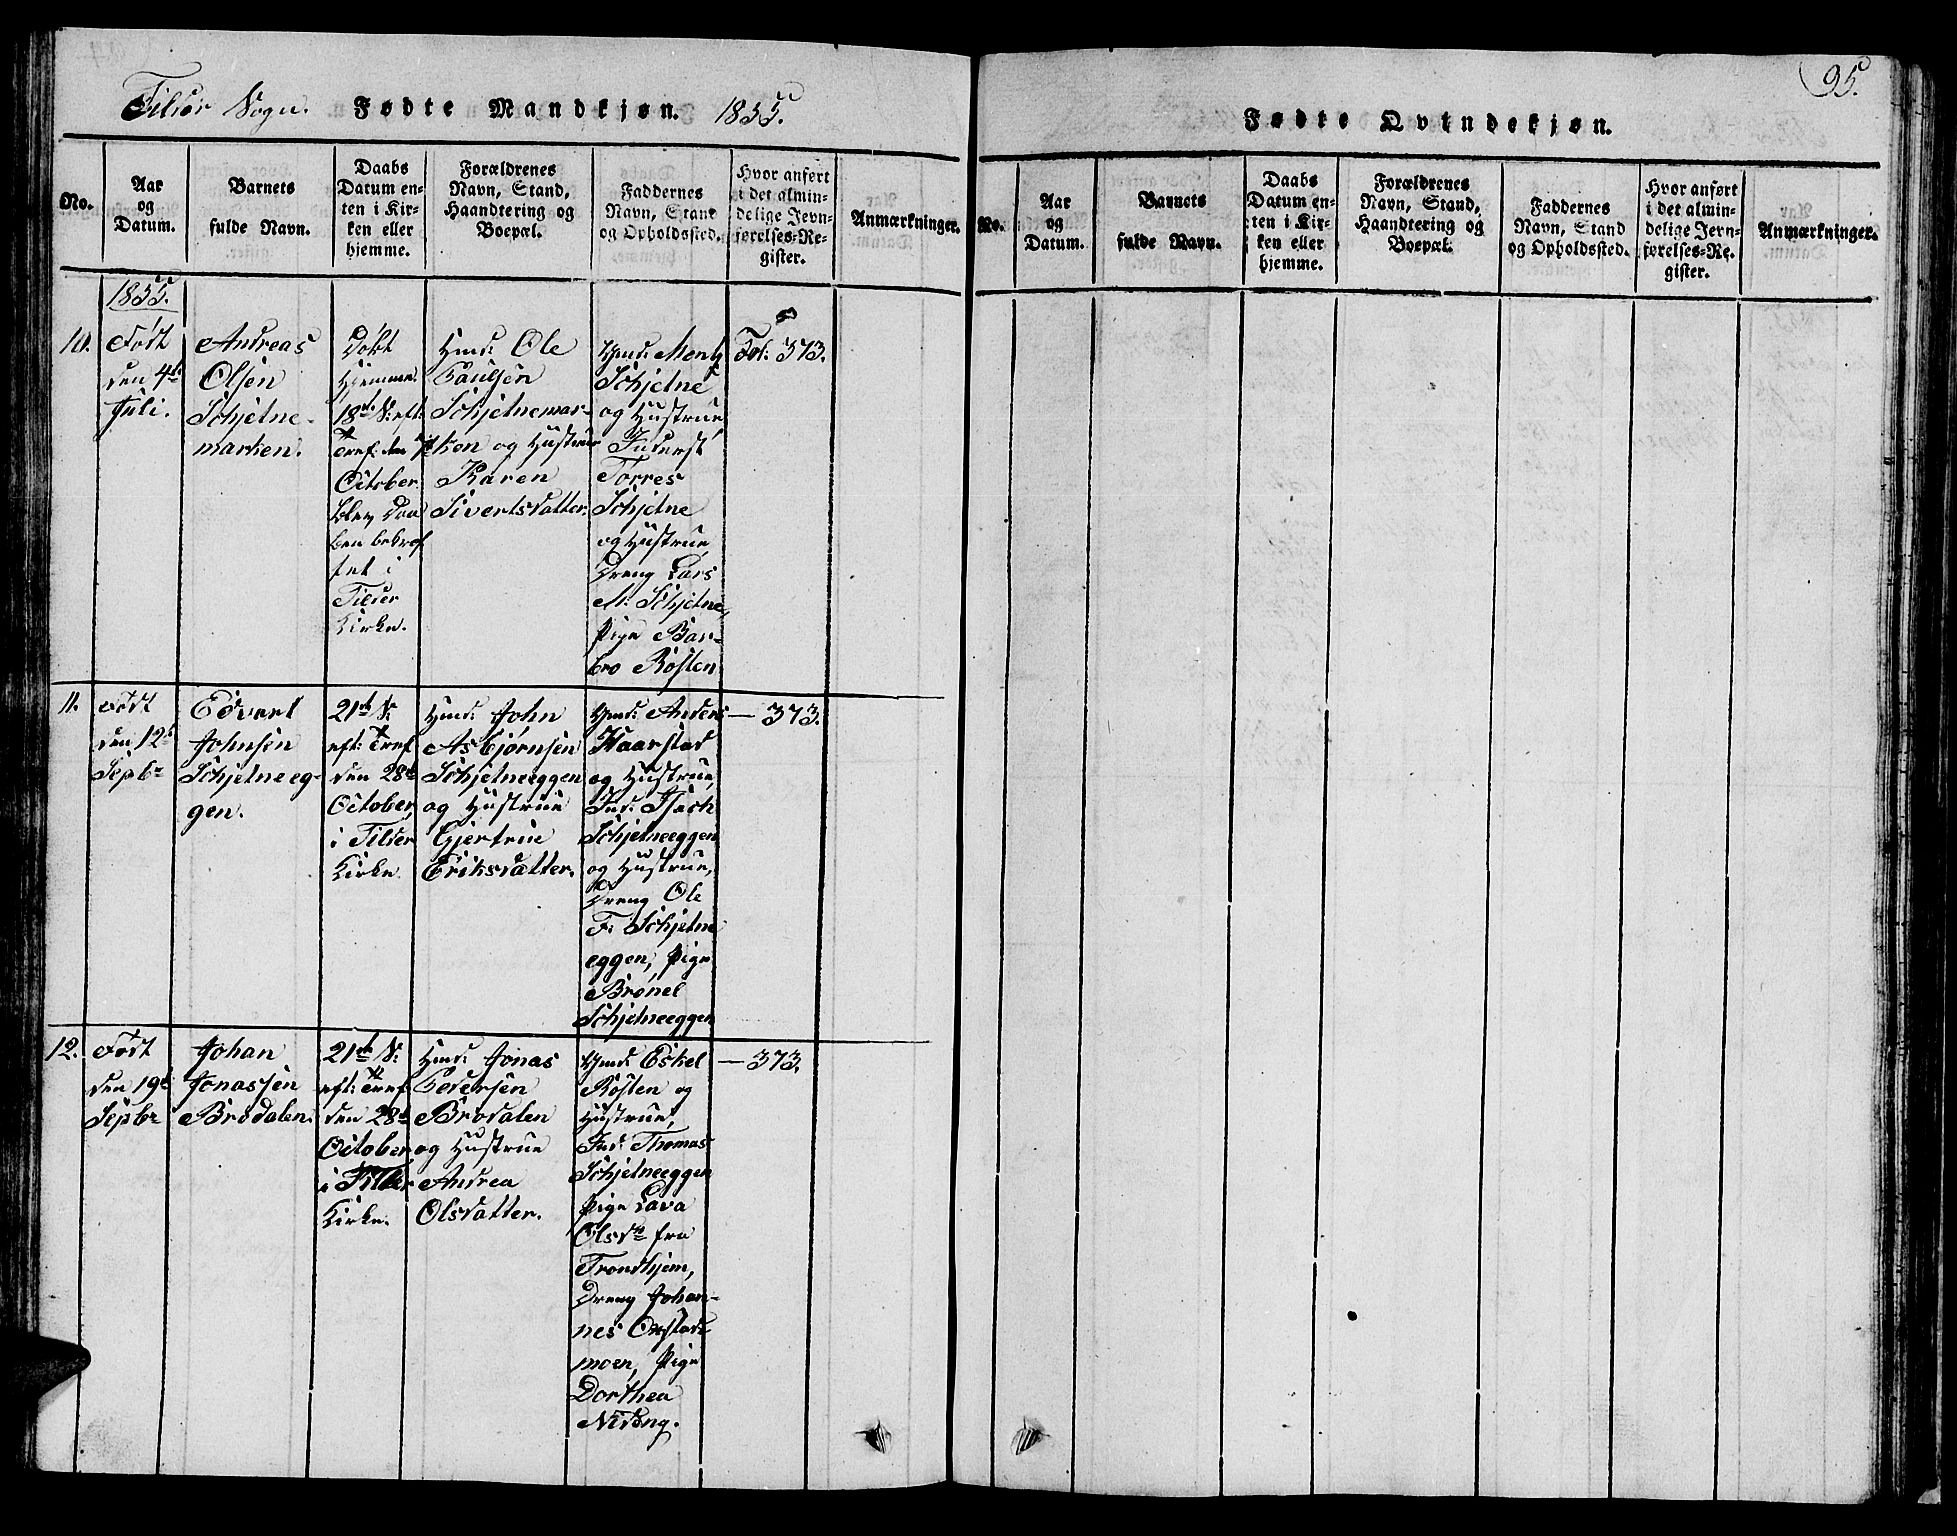 Tilder Sogn. Fødte Mandkjøn. 1855.
No.
Aar
og
Datum.
Barnets
fulde Navn.
Daabs
Datum en-
ten i Kir-
ken eller
hjemme.
Forældrenes
Navn, Stand,
Haandtering og
Boepæl.
Faddernes
Navn, Stand
og Opholdssted.
Hvor anført
i det almin-
delige Jevn-
førelses-Re-
gister.
Anmærkninger.
1855.
10.
Født
den 4de
Juli.
Andreas
Olsen
Schjetne-
marken.
Døbt
hjemme.
18de S: eft:
Tref: den 7de
October
blev Daa
ben bekræf
tet i
Tilder
Kirke.
Huusmd: Ole
Paulsen
Schjetnemar-
ken og Hustrue
Karen
Sivertsdatter.
Gmd: Mentz
Schjetne
og Hustrue
Inderst
Torres
Schjetne
og Hustrue,
Dreng Lars
M: Schjetne,
Pige Bar-
bro Røsten
Fol: 373.
11.
Født
den 12te
Septbr
Edvart
Johnsen
Schjetneeg-
gen.
21de S:
eft: Tref
den 28de
October
i Tilder
Kirke.
Huusmd: John
Asbjørnsen
Schjetneeggen
og Hustrue
Gjertrue
Eriksdatter.
Gmd: Anders
Haarstad
og Hustrue,
Ind: Isach
Schjetneeggen
og Hustrue,
Dreng Ole
F: Schjetne
eggen, Pige
Brønel
Schjetneeggen
— 373.
12.
Født
den 19de
Septbr
Johan
Jonassen
Brødalen.
21de S:
eft: Tref
den 28de
October
i Tilder
Kirke.
Huusmd: Jonas
Pedersen
Brødalen
og Hustrue
Andrea
Olsdatter.
Gmd: Eskel
Røsten og
Hustrue,
Ind: Thomas
Schjetneeggen
Pige Lava
Olsdtr fra
Trondhjem,
Dreng Johan-
nes Okstad-
moen, Pige
Dorthea
Nideng.
— 373.
95.
Fødte Qvindekjøn.
No.
Aar
og
Datum.
Barnets
fulde Navn.
Daabs
Datum en-
ten i Kir-
ken eller
hjemme.
Forældrenes
Navn, Stand,
Haandtering og
Boepæl.
Faddernes
Navn, Stand
og Opholdssted.
Hvor anført
i det almin-
delige Jevn-
førelses-Re-
gister.
Anmærkninger.